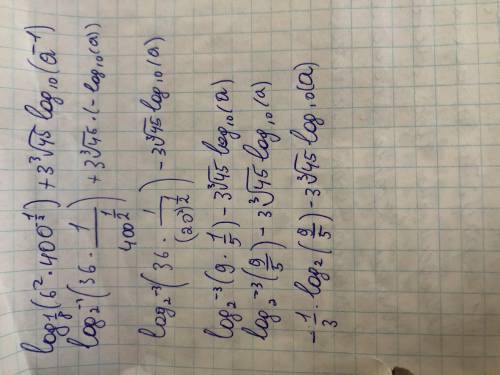 log_{1/8}(6² · 400^{-1/2}) + 3∛45 log₁₀(a⁻¹)
log_{2⁻³}(36 · 1/400^{1/2}) + 3∛45 · (-log₁₀(a))
log_{2⁻³}(36 · 1/(20²)^{1/2}) - 3∛45 log₁₀(a)
log_{2⁻³}(9 · 1/5) - 3∛45 log₁₀(a)
log_{2⁻³}(9/5) - 3∛45 log₁₀(a)
-1/3 · log₂(9/5) - 3∛45 log₁₀(a)